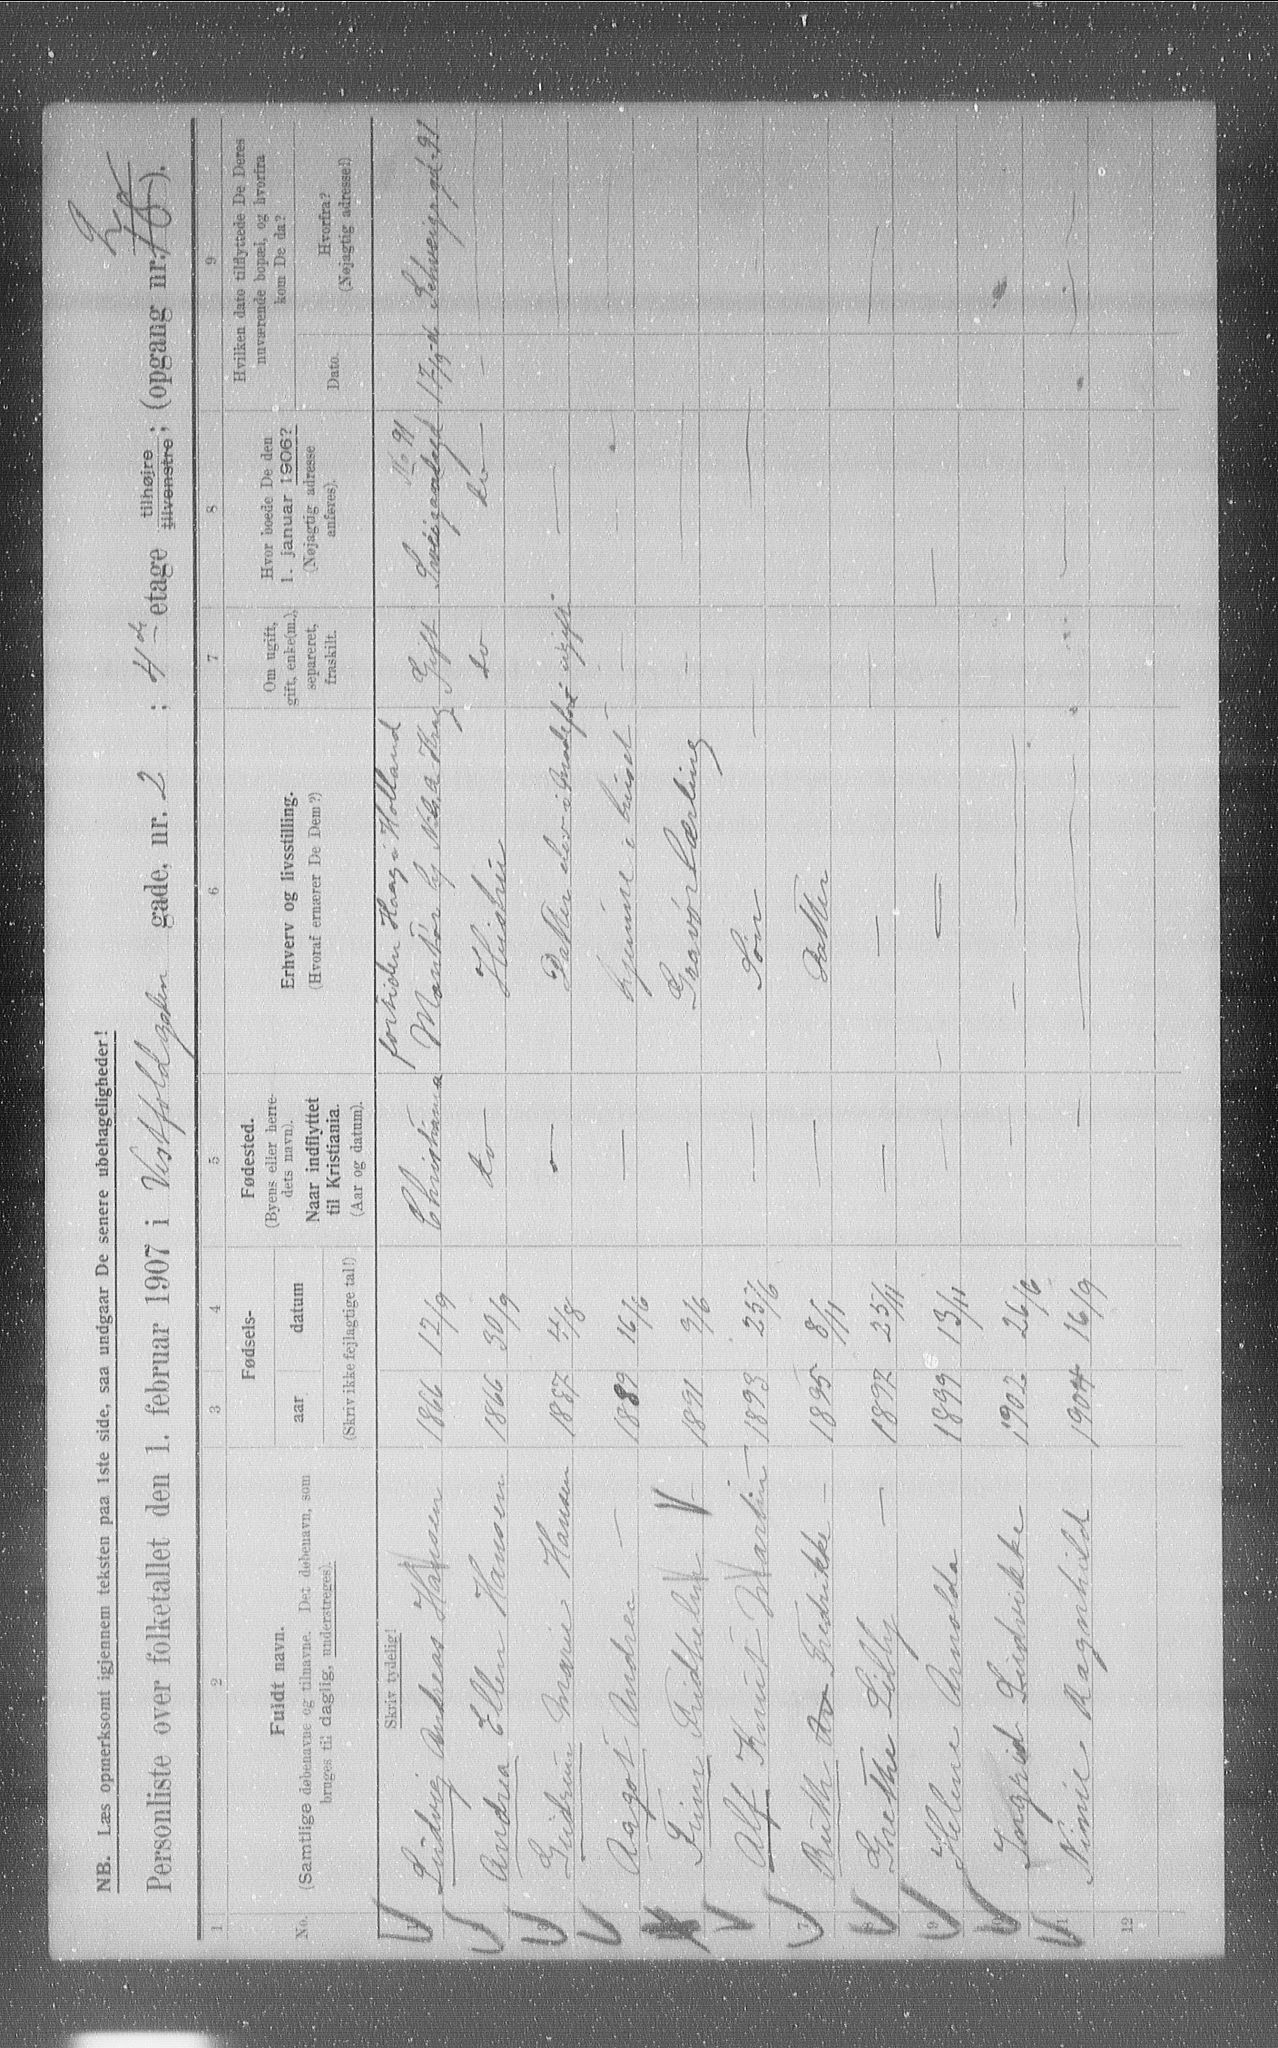 NB. Læs opmerksomt igjennem teksten paa 1ste side, saa undgaar De senere ubehageligheder!
Personliste over folketallet den 1. februar 1907 i Vestfoldgaden gade, nr. 2 ; 4de etage tilhøjre tilvenstre ; (opgang nr. 2).
1 2 3 4 5 6 7 8 9
No.
Fuldt navn.
(Samtlige døbenavne og tilnavne. Det døbenavn, som
bruges til daglig, understreges).
Fødsels-
aar datum
(Skriv ikke fejlagtige tal!)
Fødested.
(Byens eller herre-
dets navn).
Naar indflyttet
til Kristiania.
(Aar og datum).
Erhverv og livsstilling.
(Hvoraf ernærer De Dem?)
Om ugift,
gift, enke(m.),
separeret,
fraskilt.
Hvor boede De den
1. januar 1906?
(Nøjagtig adresse
anføres).
Hvilken dato tilflyttede De Deres
nuværende bopæl, og hvorfra
kom De da?
Dato.
Hvorfra?
(Nøjagtig adresse!)
Skriv tydelig!
fortiden Haag i Holland No 91
1 Ludvig Andreas Hansen 1866 12/9 Christiania Montør Gift 17/9 Schweigrgd. 91
Andrea Ellen Hansen 1866 30/9 do — Hustru do do — —
3 Gudrun Marie Hansen 1887 4/8 — Datter ugift —
Aagot Andrea — 1889 16/6 — hjemme i huset — — —
Finn Fridhelm — 1891 9/6 — Gravør Lærling — —
Alf Knut Martin — 1893 25/6 — Søn — —
7 Ruth Fredrikke — 1895 8/11 — Datter
Grethe Lilly — 1897 25/11 — — — —
9 Helene Arnolda 1899 13/11 — — —
Ingrid Ludvikke 1902 26/6 — —
11 Nimie Ragnhild 1904 16/9 — — — —
12